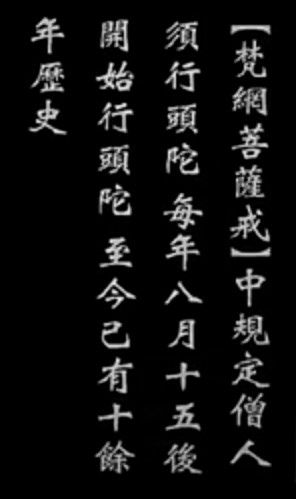 【梵網菩薩戒】中規定僧人
須行頭陀 每年八月十五後
開始行頭陀 至今已有十餘
年歷史